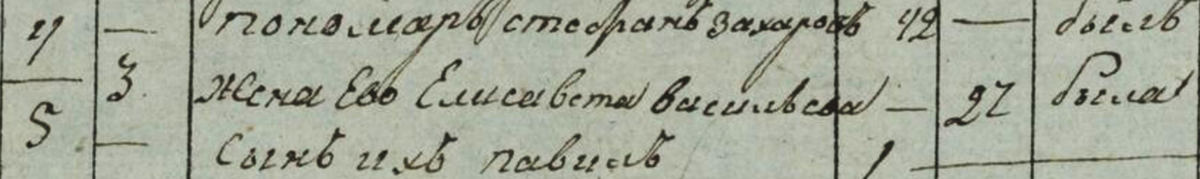 4 — пономарь стефанъ захаровъ 42 — былъ
3 жена Его Елисавета васильева — 27 была
5 — сынъ ихъ павилъ 1 —